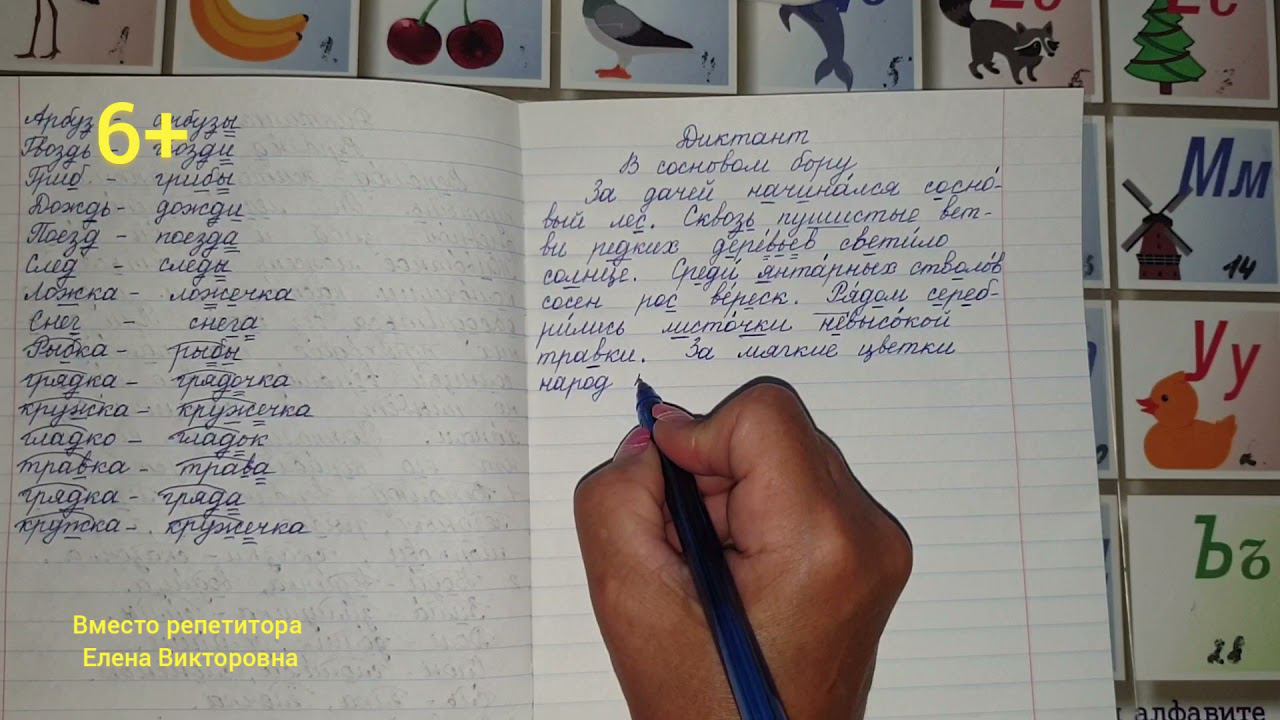 6+
Арбуз - арбузы
Гвоздь - гвозди
Гриб - грибы
Дождь - дожди
Поезд - поезда
След - следы
Ложка - ложечка
Снег - снега
Рыбка - рыбы
грядка - грядочка
кружка - кружечка
гладко - гладок
травка - трава
грядка - гряда
кружка - кружечка
Вместо репетитора
Елена Викторовна
Диктант
В сосновом бору
За дачей начина́лся сосно́-
вый лес. Сквозь пушистые вет-
ви редких дере́вьев свети́ло
солнце. Среди́ янта́рных стволо́в
сосен рос ве́реск. Ря́дом сереб-
ри́лись листо́чки невысо́кой
травки. За мягкие цветки
народ
Мм
14
Уу
Ъъ
28
алфавите